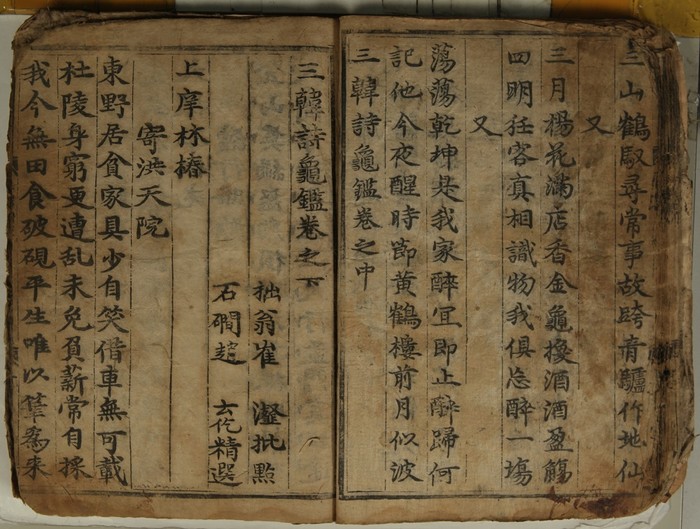 三山鶴馭尋常事故跨青驢作地仙
又
三月楊花滿店香金龜換酒酒盈觴
四明狂客真相識物我俱忘醉一場
又
蕩蕩乾坤是我家醉宜即止醉歸何
記他今夜醒時節黃鶴樓前月似波
三韓詩龜鑑卷之中
三韓詩龜鑑卷之下
拙翁崔瀣批點
石磵趙云仡精選
上庠林椿
寄洪天院
東野居貧家具少自笑借車無可載
杜陵身窮更遭乱未免負薪常自採
我今無田食破硯平生唯以筆為耒